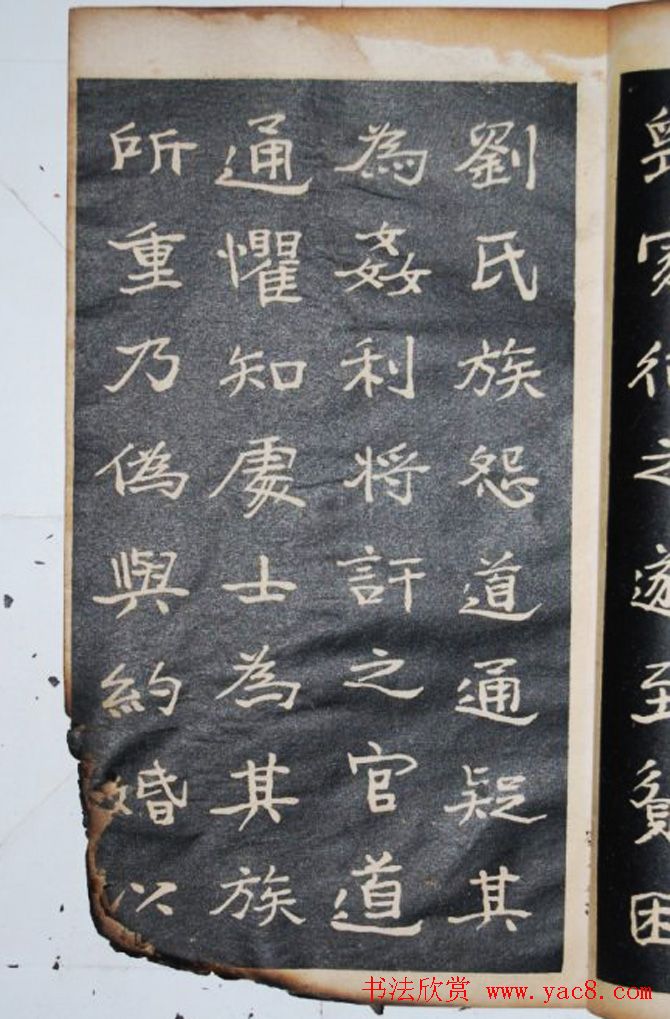 劉氏族怨道通疑其
為姦利將訐之官道
通懼知處士為其族
所重乃偽與約婚以
家衍之遂至貧困
书法欣赏 www.yac8.com